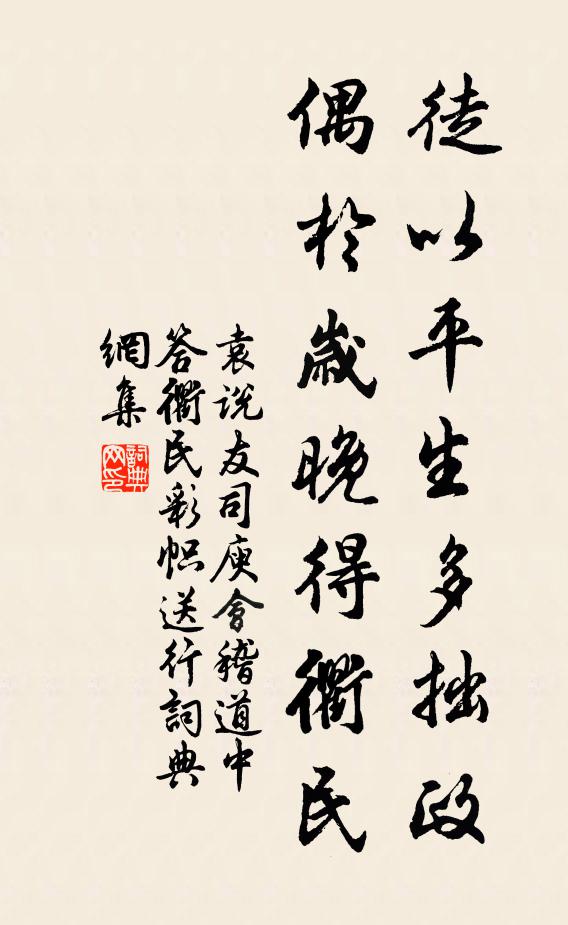 徒以平生多拙政
偶於歲晚得衢民
袁说友司庾會稽道中
答衢民彩帜送行詞典
網集
詞典网印